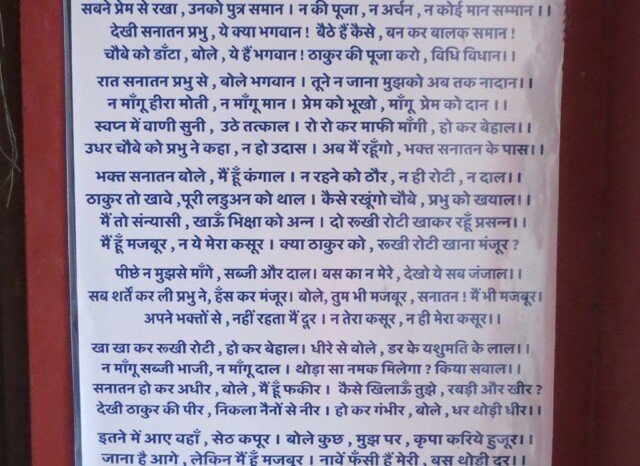 सबने प्रेम से रखा , उनको पुत्र समान । न की पूजा , न अर्चन , न कोई मान सम्मान ।।
देखी सनातन प्रभु , ये क्या भगवान ! बैठे हैं कैसे , बन कर बालक समान !
चौबे को डाँटा , बोले , ये हैं भगवान ! ठाकुर की पूजा करो , विधि विधान।।
रात सनातन प्रभु से , बोले भगवान । तूने न जाना मुझको अब तक नादान।।
न माँगू हीरा मोती , न माँगू मान । प्रेम को भूखो , माँगू प्रेम को दान ।।
स्वप्न में वाणी सुनी , उठे तत्काल । रो रो कर माफी माँगी , हो कर बेहाल।।
उधर चौबे को प्रभु ने कहा , न हो उदास । अब मैं रहूँगो , भक्त सनातन के पास।।
भक्त सनातन बोले , मैं हूँ कंगाल । न रहने को ठौर , न ही रोटी , न दाल।।
ठाकुर तो खावे ,पूरी लडुअन को थाल । कैसे रखूंगो चौबे , प्रभु को खयाल।।
मैं तो संन्यासी , खाऊँ भिक्षा को अन्न । दो रूखी रोटी खाकर रहूँ प्रसन्न।।
मैं हूँ मजबूर , न ये मेरा कसूर । क्या ठाकुर को , रूखी रोटी खाना मंजूर ?
पीछे न मुझसे माँगे , सब्जी और दाल। बस का न मेरे , देखो ये सब जंजाल।।
सब शर्तें कर ली प्रभु ने, हँस कर मंजूर। बोले, तुम भी मजबूर , सनातन ! मैं भी मजबूर।
अपने भक्तों से , नहीं रहता मैं दूर । न तेरा कसूर , न ही मेरा कसूर।।
खा खा कर रूखी रोटी , हो कर बेहाल। धीरे से बोले , डर के यशुमति के लाल।।
न माँगू सब्जी भाजी , न माँगू दाल । थोड़ा सा नमक मिलेगा ? किया सवाल।।
सनातन हो कर अधीर , बोले , मैं हूँ फकीर । कैसे खिलाऊँ तुझे , रबड़ी और खीर ?
देखी ठाकुर की पीर , निकला नैनों से नीर । हो कर गंभीर , बोले , धर थोड़ी धीर।।
इतने में आए वहाँ , सेठ कपूर । बोले कुछ , मुझ पर , कृपा करिये हुजूर।।
जाना है आगे , लेकिन मैं हूँ मजबूर । नावें फँसी हैं मेरी , बस थोड़ी दूर।।